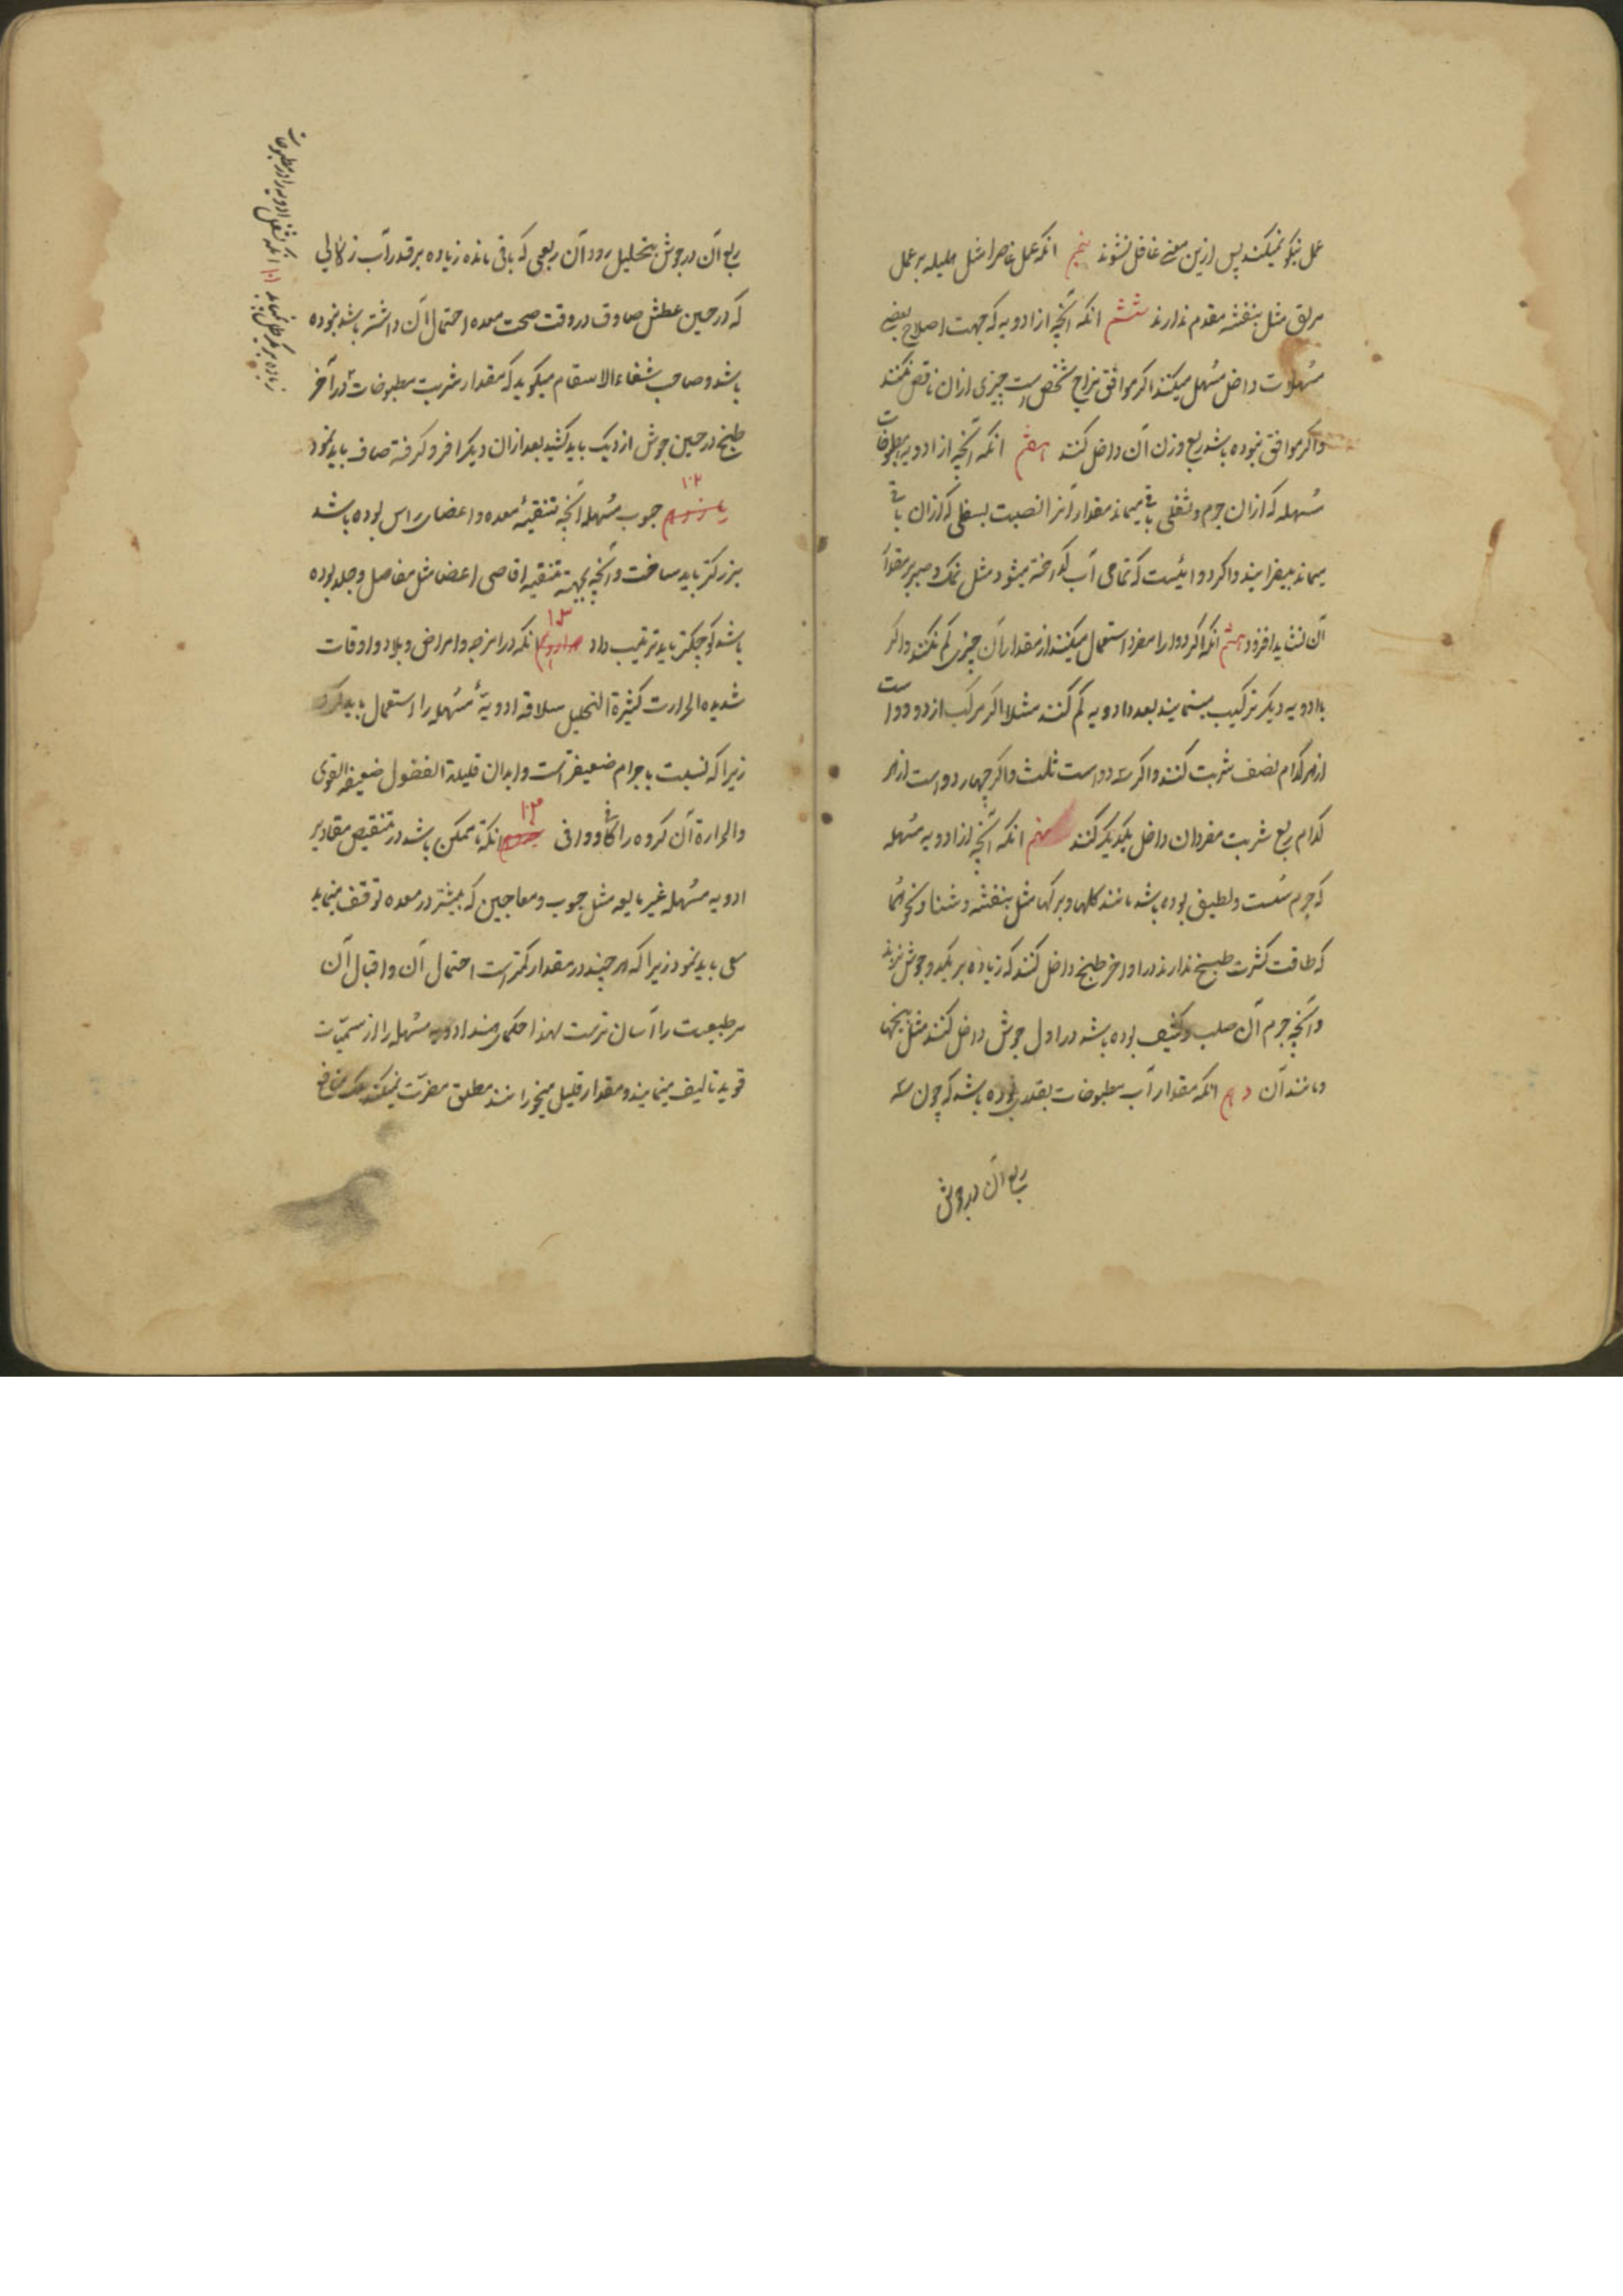 عمل نیکو نمیکند پس ازین معنی غافل نشوند پنجم انکه عمل عاصر را مثل هلیله بر عمل
مزلق مثل بنفشه مقدم ندارند ششم انکه آنچه از ادویه که جهت اصلاح بعضی
مسهلات داخل مسهل میکنند اکر موافق مزاج شخص است چیزی ازان ناقص نکنند
و اکر موافق نبوده باشد ربع وزن آن داخل کنند هفتم انکه آنچه از ادویه مطبوخات
مسهله که ازان جرم و ثفلی باقی میماند مقدار آنرا نصبت بسفلی که ازان باقی
میماند بیفزایند و اکر دوائیست که تمامی آب کداخته میشود مثل نمک و صبر بر مقدار
آن نشاید افزود هشتم انکه اکر دوا را مفرد استعمال میکنند از مقدار آن چیزی کم نکنند و اکر
با ادویه دیکر ترکیب مینمایند بعدد ادویه کم کنند مثلا اکر مرکب از دو دواست
از هر کدام نصف شربت کنند و اکر سه دواست ثلث و اکر چهار دواست از هر
کدام ربع شربت مفردان داخل یکدیکر کنند نهم انکه آنچه از ادویه مسهله
که جرم سست و لطیف بوده باشد مانند کلها و برکها مثل بنفشه و سنا و نحو آنها
که طاقت کثرت طبیخ ندارند در اواخر طبخ داخل کنند که زیاده بر یکدو جوش نزند
و آنچه جرم آن صلب و کثیف بوده باشد در اول جوش داخل کنند مثل بیخها
و مانند آن دهم انکه مقدار آب مطبوخات بقدری بوده باشد که چون سه
ربع آن در جوش
ربع آن در جوش بتحلیل رود آن ربعی که باقی مانده زیاده بر قدر آب زلالی
که در حین عطش صادق در وقت صحت معده احتمال آن داشته باشد نبوده
باشد و صاحب شفاء الاسقام میکوید که مقدار شربت مطبوخات در آخر
طبخ در حین جوش از دیک باید کشید بعد ازان دیکر افرو کرفته صاف باید نمود
۱۰۲
یازدهم حبوب مسهله آنچه تنقیهٔ معده و اعضای راس بوده باشد
بزرکتر باید ساخت و آنچه بجهت تنقیه اقاصی اعضا مثل مفاصل و جلد بوده
باشد کوچکتر باید ترتیب داد ۱۰۳ دوازدهم انکه در امزجه و امراض و بلاد و اوقات
شدیده الحرارت کثیرة التحلیل سلاقه ادویهٔ مسهله را استعمال باید کرد
زیرا که نسبت باجرام ضعیفتر است و ابدان قلیلة الفضول ضعیفه القوی
والحرارة آن کروه را کافی و وافی ۱۰۴ سیزدهم انکه تا ممکن باشد در تنقیص مقادیر
ادویه مسهله غیر مایعه مثل حبوب و معاجین که بیشتر در معده توقف مینماید
سعی باید نمود زیرا که هر چند در مقدار کمتر است احتمال آن و اقبال آن
مر طبیعت را آسان ترست لهذا حکمای هند ادویه مسهله را از سمیّات
قویه تالیف مینمایند و مقدار قلیل میخورانند مطلق مضرّت نمیکند بلکه منافع
۱۰۱ انکه ثفل ادویه را در مطبوخات
زیاده بر یکرطل نباید